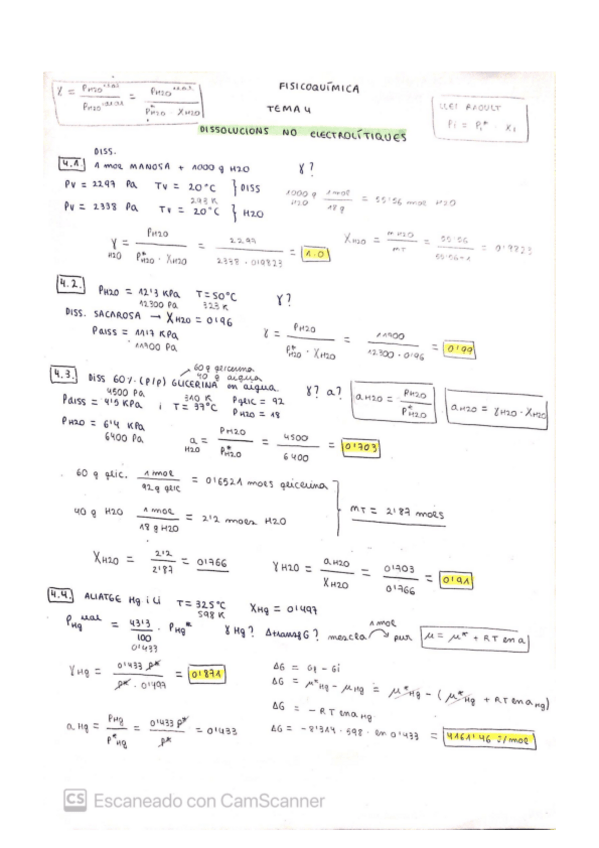 FISICOQUÍMICA
TEMA 4
DISSOLUCIONS NO ELECTROLÍTIQUES
LLEI RAOULT
Pi = Pi* · Xi
4.1. DISS. 1 mol MANOSA + 1000 g H2O γ?
Pv = 2297 Pa Tv = 20°C } DISS
293 K
Pv = 2338 Pa Tv = 20°C } H2O
1000 g H2O 1 mol / 18 g = 55'56 mol H2O
γ H2O = PH2O / P*H2O · XH2O = 2297 / 2338 · 0'9823 = 1.0
XH2O = n H2O / nT = 55'56 / 55'56+1 = 0'9823
4.2. PH2O = 12'3 KPa T = 50°C γ?
12300 Pa 323 K
DISS. SACAROSA → XH2O = 0'96
Pdiss = 11'9 KPa
11900 Pa
γ = PH2O / P*H2O · XH2O = 11900 / 12300 · 0'96 = 0'99
4.3. DISS 60% (P/P) GLICERINA en aigua. γ? a?
60 g glicerina
40 g aigua
4500 Pa 310 K
Pdiss = 4'5 KPa i T = 37°C Pglic = 92
PH2O = 18
aH2O = PH2O / P*H2O
aH2O = γH2O · XH2O
PH2O = 6'4 KPa
6400 Pa
a H2O = PH2O / P*H2O = 4500 / 6400 = 0'703
60 g glic. 1 mol / 92 g glic = 0'6521 mols glicerina
40 g H2O 1 mol / 18 g H2O = 2'2 moles H2O
mT = 2'87 mols
XH2O = 2'2 / 2'87 = 0'766
γH2O = aH2O / XH2O = 0'703 / 0'766 = 0'91
4.4. ALIATGE Hg i Li T = 325°C XHg = 0'497
598 K
PHg = 43'3 / 100 · PHg* γHg? ΔtransfG? mescla → pur
0'433
1 mol
μ = μ* + RT ln a
γHg = 0'433 P* / P* · 0'497 = 0'871
ΔG = Gf - Gi
ΔG = μ*Hg - μHg = μ*Hg - (μ*Hg + RT ln aHg)
ΔG = - RT ln aHg
a Hg = PHg / P*Hg = 0'433 P* / P* = 0'433
ΔG = -8'314 · 598 · ln 0'433 = 4161'46 J/mol
CS Escaneado con CamScanner